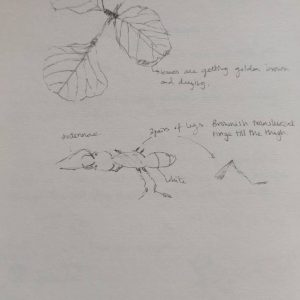 leaves are getting golden brown
and drying.
antennae
2pairs of legs
Brownish translucent
tinge till the thigh.
white